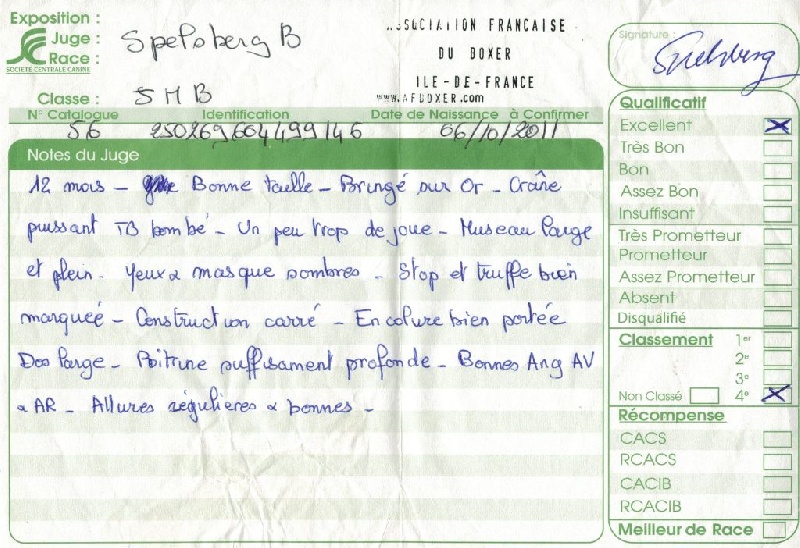 Exposition :
Juge : Spelsberg B
Race :
SOCIÉTÉ CENTRALE CANINE
ASSOCIATION FRANCAISE
DU BOXER
ILE-DE-FRANCE
www.AFBOXER.com
Classe : JMB
N° Catalogue Identification Date de Naissance à Confirmer
56 250269604499146 06/10/2011
Notes du Juge
12 mois - Bonne taille - Bringé sur Or - Crâne
puissant TB bombé - Un peu trop de joue - Museau large
et plein - Yeux & masque sombres - Stop et truffe bien
marqueé - Construction carré - Encolure bien portée
Dos large - Poitrine suffisament profonde - Bonnes Ang AV
& AR - Allures régulieres & bonnes -
Signature :
Spelsberg
Qualificatif
Excellent X
Très Bon
Bon
Assez Bon
Insuffisant
Très Prometteur
Prometteur
Assez Prometteur
Absent
Disqualifié
Classement 1er
2e
3e
Non Classé 4e X
Récompense
CACS
RCACS
CACIB
RCACIB
Meilleur de Race